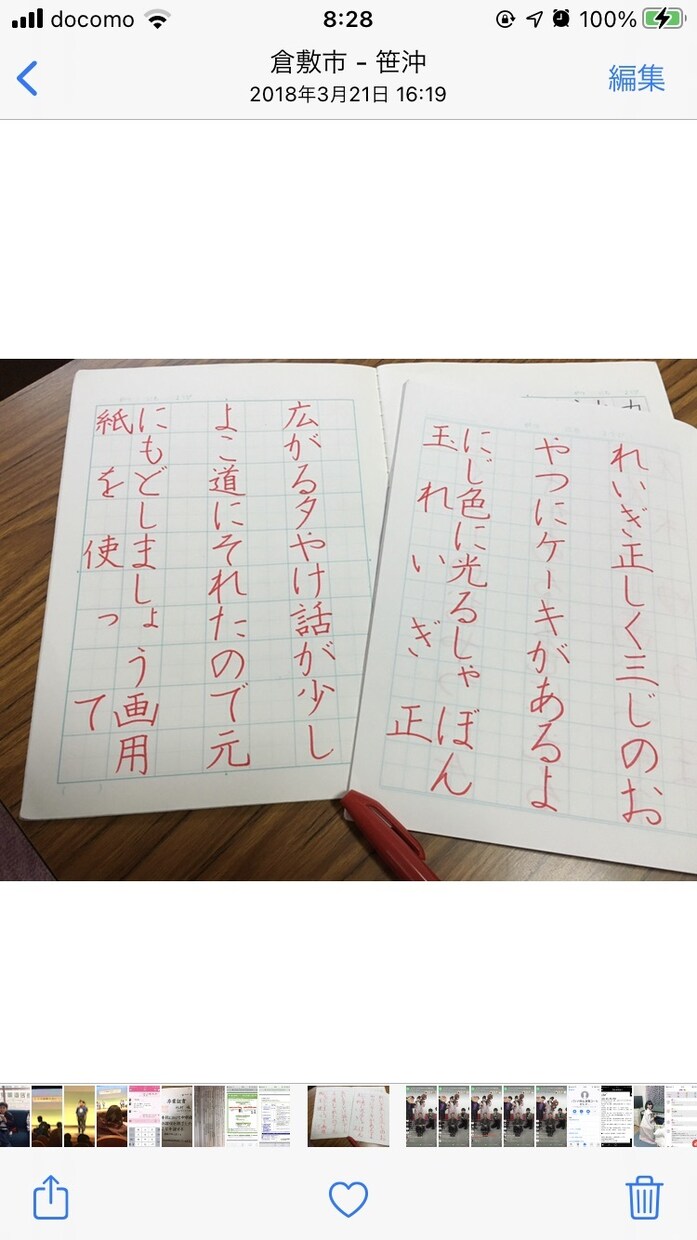 docomo 8:28 100%
倉敷市 – 笹沖
編集
2018年3月21日 16:19
れいぎ正しく三じのお
やつにケーキがあるよ
にじ色に光るしゃぼん
玉れいぎ正
広がる夕やけ話が少し
よこ道にそれたので元
にもどしましょう画用
紙を使って